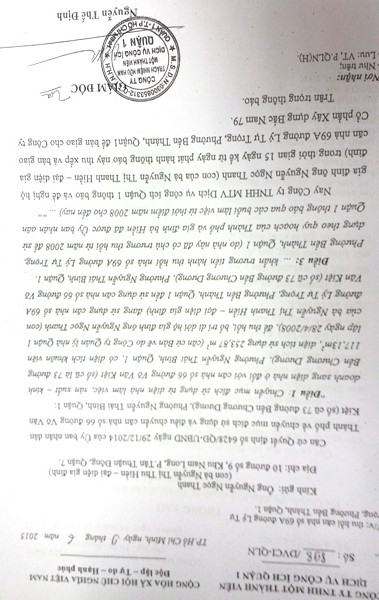 DỊCH VỤ CÔNG ÍCH QUẬN 1
CỘNG HÒA XÃ HỘI CHỦ NGHĨA VIỆT NAM
Độc lập – Tự do – Hạnh phúc
Số: 808 /DVCI-QLN
TP.Hồ Chí Minh, ngày 9 tháng 6 năm 2015
V/v: thu hồi căn nhà số 69A đường Lý Tự
Trọng, Phường Bến Thành, Quận 1.
Kính gửi: Ông Nguyễn Ngọc Thanh
(con bà Nguyễn Thị Thu Hiền – đại diện gia đình)
Địa chỉ: 10 đường số 9, Khu Nam Long, P.Tân Thuận Đông, Quận 7.
Căn cứ Quyết định số 6428/QĐ-UBND ngày 29/12/2014 của Ủy ban nhân dân
Thành phố về chuyển mục đích sử dụng và điều chuyển căn nhà số 66 đường Võ Văn
Kiệt (số cũ 73 đường Bến Chương Dương), Phường Nguyễn Thái Bình, Quận 1:
"Điều 1. Chuyển mục đích sử dụng từ diện nhà làm việc, sản xuất – kinh
doanh sang diện nhà ở đối với căn nhà số 66 đường Võ Văn Kiệt (số cũ 73 đường
Bến Chương Dương), Phường Nguyễn Thái Bình, Quận 1, có diện tích khuôn viên
117,13m², diện tích sử dụng 253,87 m² (căn cứ Bản vẽ do Công ty Quản lý nhà Quận 1
lập ngày 28/4/2009), để thu hồi, bố trí di dời hộ gia đình ông Nguyễn Ngọc Thanh (con
bà Nguyễn Thị Thanh Hiền – đại diện gia đình) đang sử dụng căn nhà số 69A
đường Lý Tự Trọng, Phường Bến Thành, Quận 1 đến sử dụng căn nhà số 66 đường Võ
Văn Kiệt (số cũ 73 đường Bến Chương Dương), Phường Nguyễn Thái Bình, Quận 1.
Điều 3: ... khẩn trương tiến hành thu hồi nhà số 69A đường Lý Tự Trọng,
Phường Bến Thành, Quận 1 (do nhà này đã có chủ trương thu hồi từ năm 2008 để sử
dụng theo quy hoạch của Thành phố và gia đình bà Hiền đã được Ủy ban nhân dân
Quận 1 thông báo qua các buổi làm việc từ thời điểm năm 2008 cho đến nay) ... ""
Nay Công ty TNHH MTV Dịch vụ công ích Quận 1 thông báo và đề nghị hộ
gia đình ông Nguyễn Ngọc Thanh (con của bà Nguyễn Thị Thanh Hiền – đại diện gia
đình) trong thời gian 15 ngày kể từ ngày phát hành thông báo này thu xếp và bàn giao
căn nhà 69A đường Lý Tự Trọng, Phường Bến Thành, Quận1 để bàn giao cho Công ty
Cổ phần Xây dựng Bắc Nam 79.
Trân trọng thông báo.
Nơi nhận:
- Như trên;
- Lưu: VT, P.QLN(H).
GIÁM ĐỐC
CÔNG TY
TRÁCH NHIỆM HỮU HẠN
MỘT THÀNH VIÊN
DỊCH VỤ CÔNG ÍCH
QUẬN 1
Nguyễn Thế Định